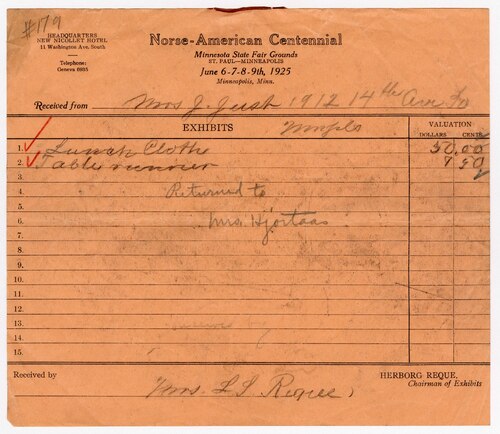 #179
HEADQUARTERS
NEW NICOLLET HOTEL
11 Washington Ave. South
Telephone:
Geneva 6935
Norse-American Centennial
Minnesota State Fair Grounds
ST. PAUL—MINNEAPOLIS
June 6-7-8-9th, 1925
Minneapolis, Minn.
Received from Mrs J. Just 1912 14th Ave So
EXHIBITS Mnpls
VALUATION
DOLLARS CENTS
1. Lunch Cloth 50.00
2. Table runner 7 50
3.
4. Returned to
5.
6. Mrs. Hjortaas
7.
8.
9.
10.
11.
12.
13.
14.
15.
Received by
Mrs. L S. Reque.
HERBORG REQUE,
Chairman of Exhibits